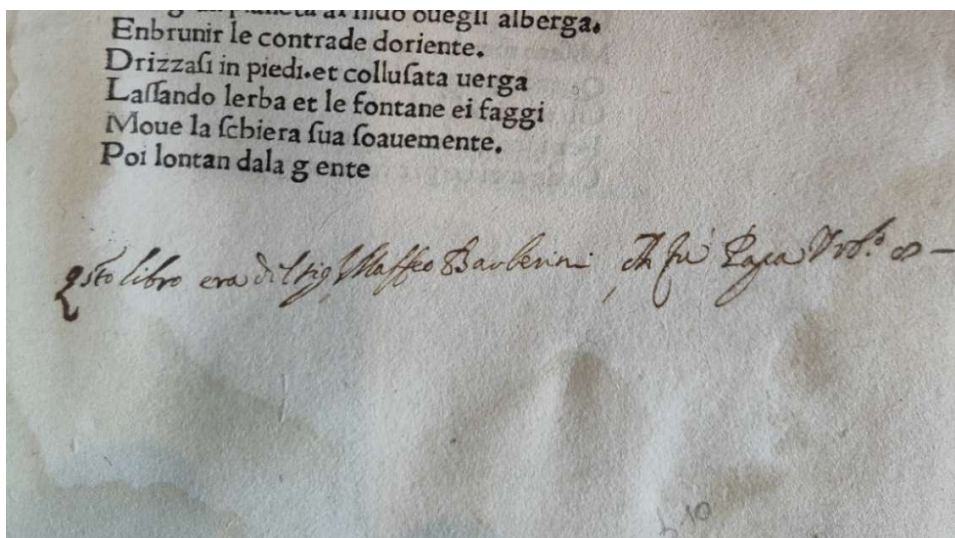 pianeta al nido ouegli alberga.
Enbrunir le contrade doriente.
Drizzaſi in piedi.et colluſata uerga
Laſſando lerba et le fontane ei faggi
Moue la ſchiera ſua ſoauemente.
Poi lontan dala g ente
Qsto libro era del sig Maffeo Barberini ch fù Papa Vrbº 8 –